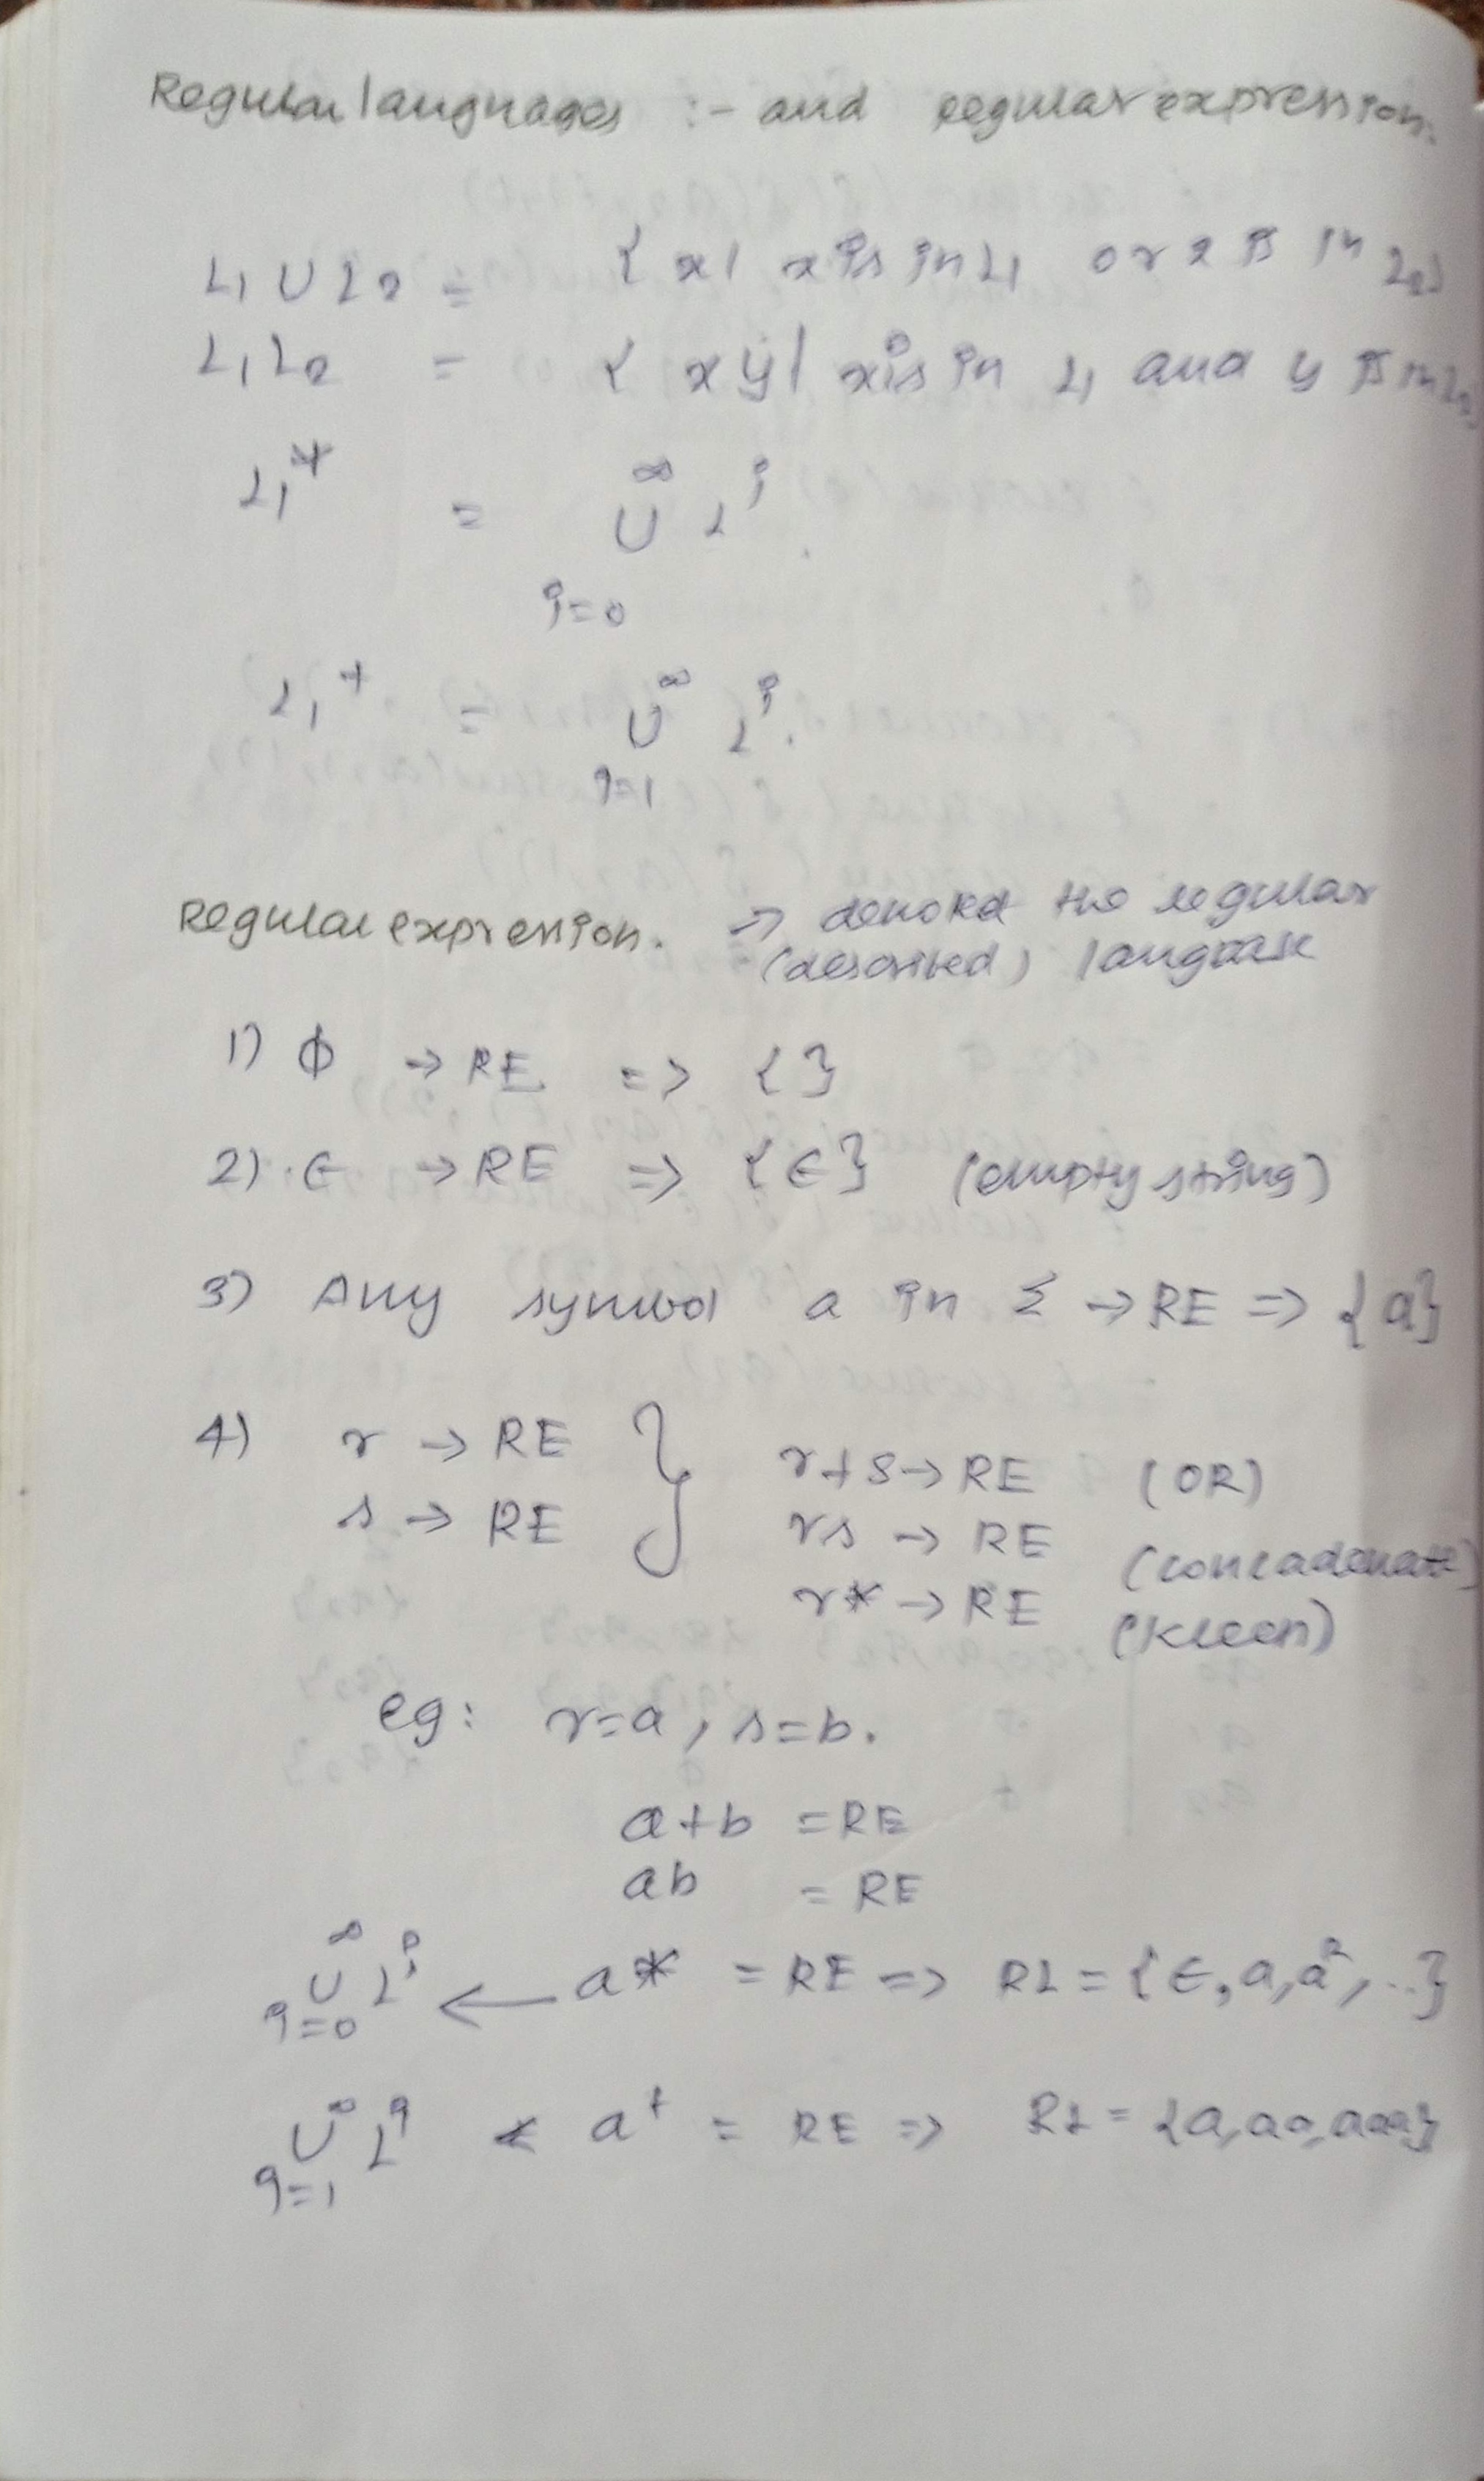 Regular languages :- and regular expression.
L1 U L2 = { x | x is in L1 or x is in L2}
L1L2 = { xy | x is in L1 and y is in L2
L1* = ∞ U L^i
i=0
L1^+ = ∞ U L^i.
i=1
Regular expression. => denoted the regular
(described) language
1) ϕ → RE => { }
2) . ϵ → RE => {ϵ} (empty string)
3) Any symbol a in Σ → RE => {a}
4) r → RE } r+s → RE (OR)
s → RE rs → RE (concadenate)
r* → RE (Kleen)
eg: r=a, s=b.
a+b = RE
ab = RE
∞ U i=0 L^i ← a* = RE => RL = {ϵ, a, a², ..}
∞ U i=1 L^i ← a^+ = RE => RL = {a, aa, aaa}